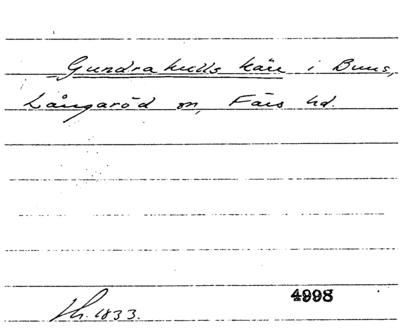 Gundrakulls kärr i Buus,
Långaröd sn, Färs hd.
4998
Lh. 1833.